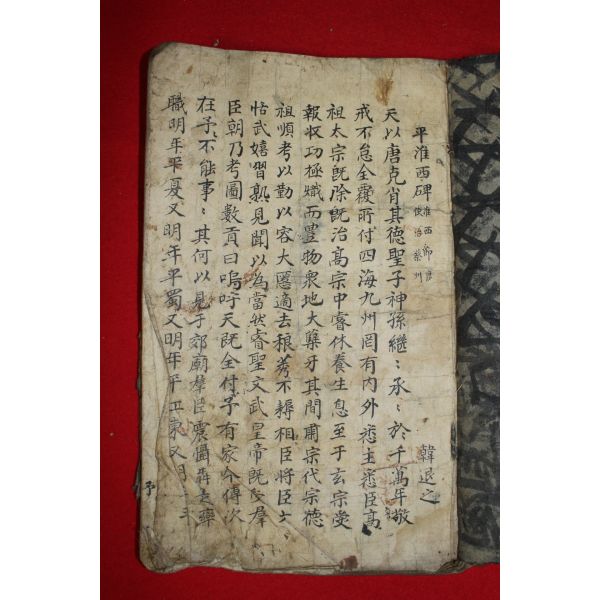 平淮西碑 淮西節度使治蔡州
韓退之
天以唐克肖其德聖子神孫繼〻承〻於千萬年敬
戒不怠全覆所付四海九州罔有内外悉主悉臣高
祖太宗既除既治高宗中睿休養生息至于玄宗受
報收功極熾而豊物衆地大蘖牙其間肅宗代宗德
祖順考以勤以容大慝適去稂莠不薅相臣將臣文
恬武嬉習熟見聞以為當然睿聖文武皇帝既受羣
臣朝乃考圖數貢曰嗚呼天既全付予有家今傳次
在予〻不能事〻其何以見于郊廟羣臣震懾犇走率
職明年平夏又明年平蜀又明年平江東又明
予